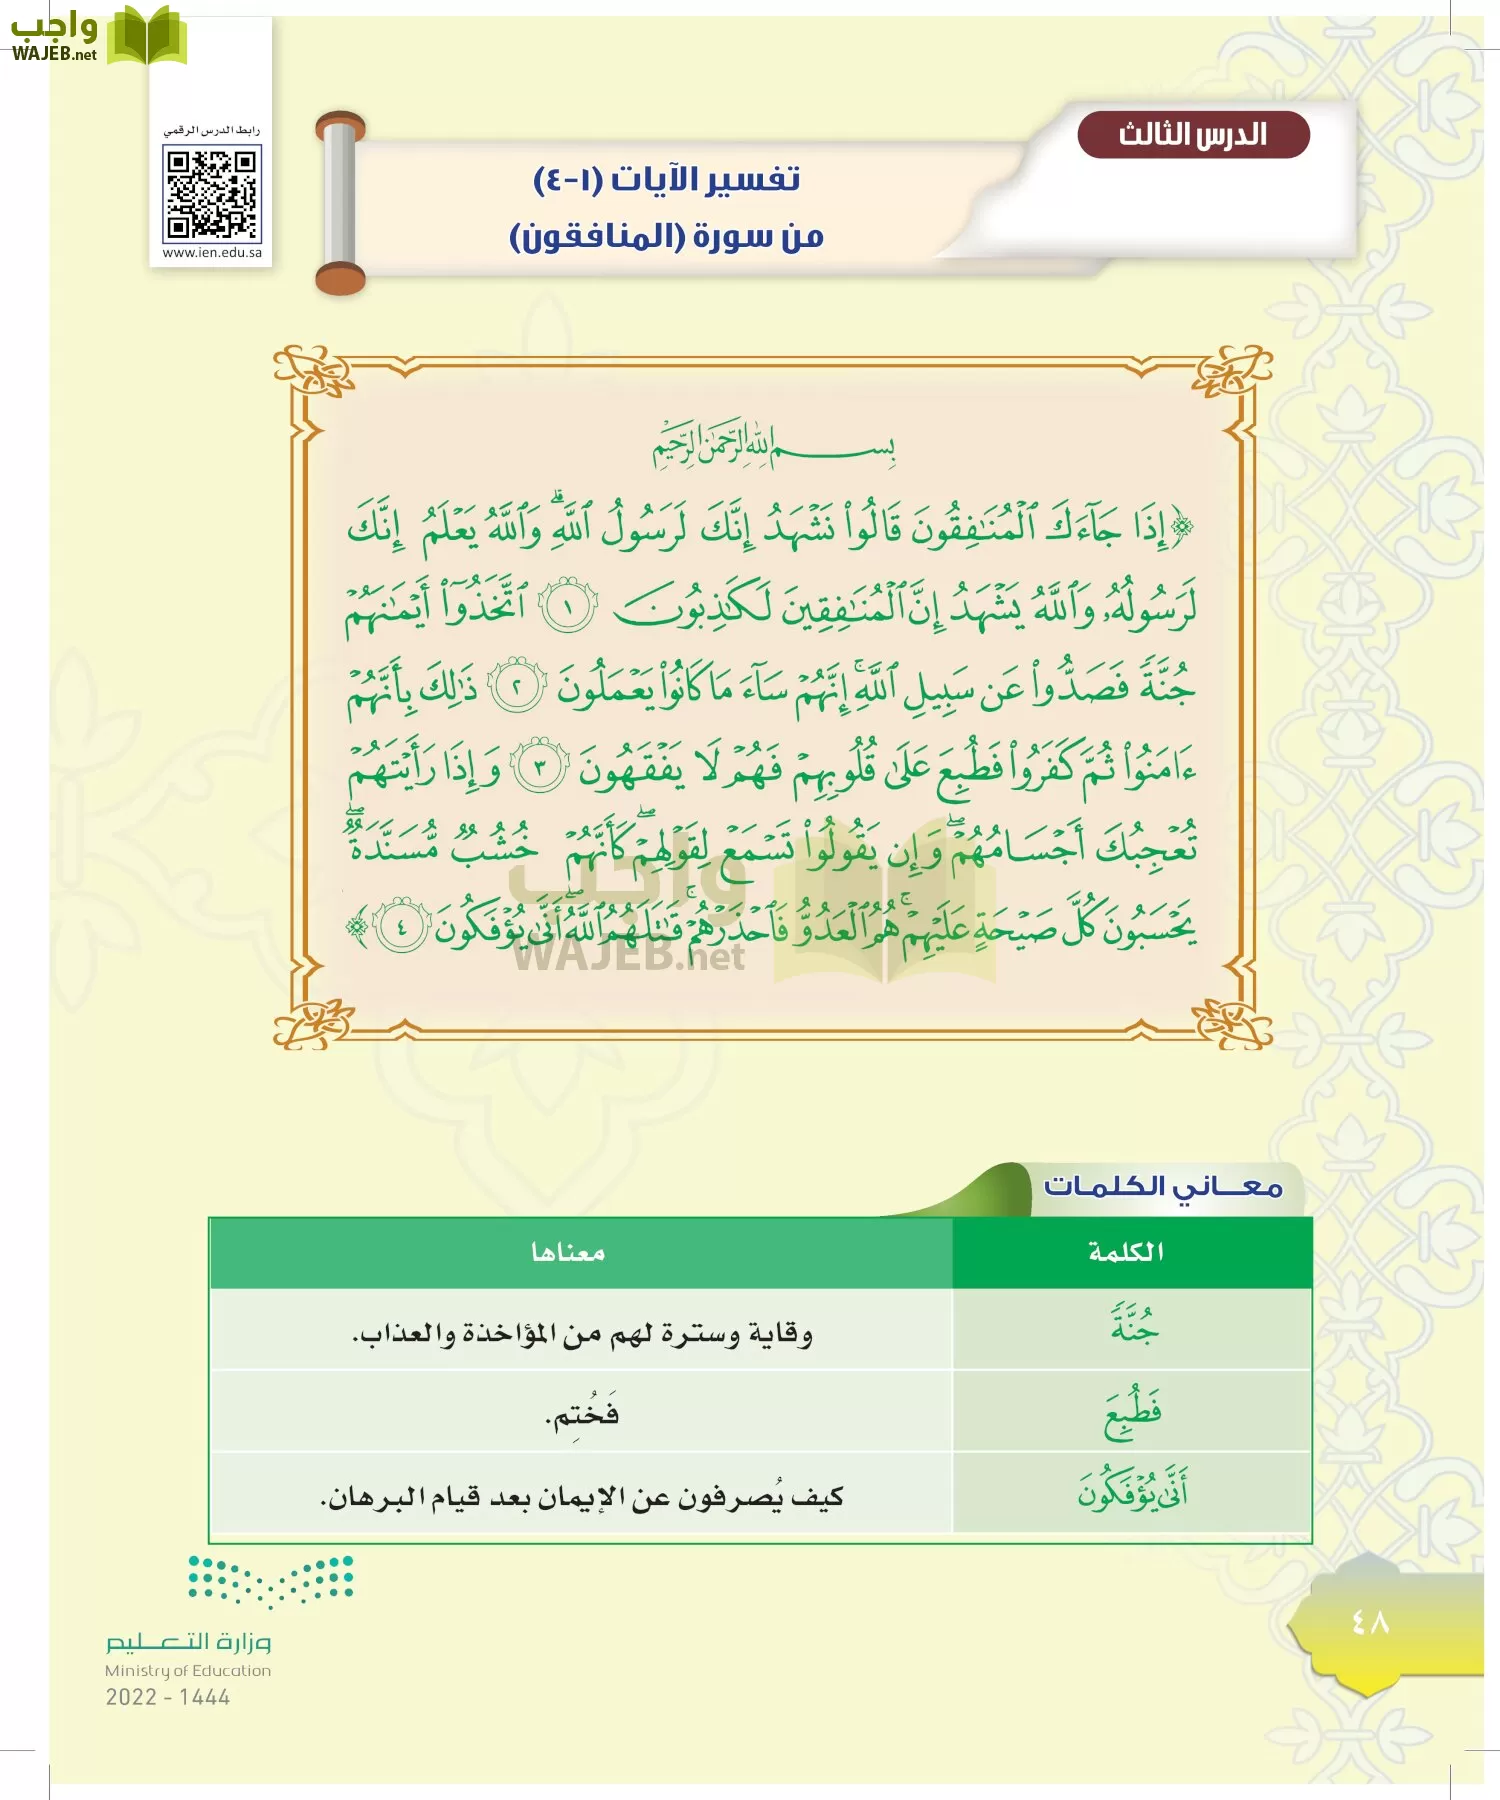 واجب
WAJEB.net
رابط الدرس الرقمي
www.ien.edu.sa
الدرس الثالث
تفسير الآيات (١-٤)
من سورة (المنافقون)
بِسْمِ اللَّهِ الرَّحْمَٰنِ الرَّحِيمِ
﴿إِذَا جَآءَكَ ٱلْمُنَٰفِقُونَ قَالُوا۟ نَشْهَدُ إِنَّكَ لَرَسُولُ ٱللَّهِ ۗ وَٱللَّهُ يَعْلَمُ إِنَّكَ
لَرَسُولُهُۥ وَٱللَّهُ يَشْهَدُ إِنَّ ٱلْمُنَٰفِقِينَ لَكَٰذِبُونَ ١ ٱتَّخَذُوٓا۟ أَيْمَٰنَهُمْ
جُنَّةً فَصَدُّوا۟ عَن سَبِيلِ ٱللَّهِ ۚ إِنَّهُمْ سَآءَ مَا كَانُوا۟ يَعْمَلُونَ ٢ ذَٰلِكَ بِأَنَّهُمْ
ءَامَنُوا۟ ثُمَّ كَفَرُوا۟ فَطُبِعَ عَلَىٰ قُلُوبِهِمْ فَهُمْ لَا يَفْقَهُونَ ٣ وَإِذَا رَأَيْتَهُمْ
تُعْجِبُكَ أَجْسَامُهُمْ ۖ وَإِن يَقُولُوا۟ تَسْمَعْ لِقَوْلِهِمْ ۖ كَأَنَّهُمْ خُشُبٌ مُّسَنَّدَةٌ ۖ
يَحْسَبُونَ كُلَّ صَيْحَةٍ عَلَيْهِمْ ۚ هُمُ ٱلْعَدُوُّ فَٱحْذَرْهُمْ ۚ قَٰتَلَهُمُ ٱللَّهُ ۖ أَنَّىٰ يُؤْفَكُونَ ٤﴾
واجب
WAJEB.net
معاني الكلمات
الكلمة معناها
جُنَّةً وقاية وسترة لهم من المؤاخذة والعذاب.
فَطُبِعَ فَخُتِم.
أَنَّىٰ يُؤْفَكُونَ كيف يُصرفون عن الإيمان بعد قيام البرهان.
وزارة التعليم
Ministry of Education
2022 - 1444
٤٨